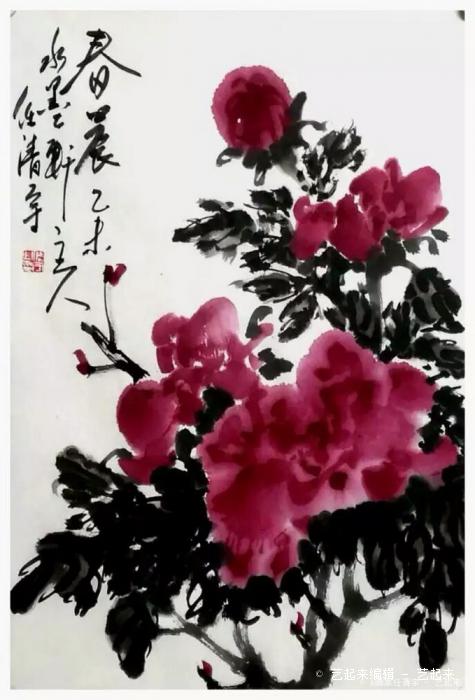 春晨乙未
水墨轩主人
任清
© 艺起来编辑 - 艺起来